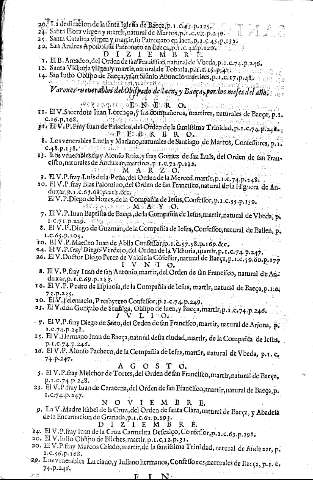 20. La dedicacion de la santa Iglesia de Baeça, p.1.c.45.p.125.
24. Santa Flora virgen y martir, natural de Martos, p.1.c.
25. Santa Catalina virgen y martir, su Patronato en Iaen, p.1.c.45.p.132.
30. San Andres Apostol su Patronato en Baeça, p.1.c.
DIZIEMBRE.
11. El B. Amadeo, del Orden de san Francisco, natural de Vbeda, p.1.c.74.p.246.
12. Santa Vitoria virgen y martir, natural de Tobaria, p.1.c.15.p.42.
14. San Iusto Obispo de Baeça, y san Abundio martires, p.1.c.
Varones venerables del Obispado de Iaen, y Baeça, por los meses del año.
ENERO.
11. El V. Sacerdote Iuan Lorenço, y sus compañeros, martires, naturales de Baeça, p.1.
c.16.p.168.
31. El V.P. Fray Iuan de Palacios, del Orden de la santissima Trinidad, p.1.c.74.p.248.
FEBRERO.
1. Los venerables Lucio y Mariano, naturales de Santiago de Martos, Confessores, p.1.
c.48.p.138.
2. Los venerables fray Alonso Ruiz, y fray Gomez de san Luis, del Orden de san Francisco,
naturales de Anduxar, martires, p.1.c.72.p.
MARZO.
2. El V.P. fray Luis de la Peña, del Orden de la Merced, martir, p.1.c.74.p.248.
10. El V.P. fray Blas Palomino, del Orden de san Francisco, natural de la Higuera de Anduxar,
p.1.c.
El V.P. Diego de Hozes, de la Compañia de Iesus, Confessor, p.1.c.55.p.159.
MAYO.
7. El V.P. Iuan Baptista de Baeça, de la Compañia de Iesus, martir, natural de Vbeda, p.
1.c.71.p.
8. El V.P. Diego de Guzman, de la Compañia de Iesus, Confessor, natural de Bailen, p.
1.c.65.p.195.
10. El V.P. Maestro Iuan de Auila Confessor, p.1.c.57.58.p.169.&c.
24. El V.P. fray Diego Verdejo, del Orden de la Vitoria, martir, p.1.c.74.p.247.
26. El V. Doctor Diego Perez de Valdivia Confessor, natural de Baeça, p.1.c.59.60.p.177
IVNIO.
8. El V.P. fray Iuan de san Antonio, martir, del Orden de san Francisco, natural de Anduxar,
p.1.c.69.p.223.
16. El V.P. Pedro de Espinosa, de la Compañia de Iesus, martir, natural de Baeça, p.1.c.
73.p.235.
20. El V. Demetrio, Presbytero Confessor, p.1.c.74.p.249.
25. El V. don Gonçalo de Stuñiga, Obispo de Iaen, y Baeça, martir, p.1.c.74.p.246.
IVLIO.
7. El V.P. fray Diego de Soto, del Orden de san Francisco, martir, natural de Arjona, p.
1.c.74.p.247.
15. El V. Hermano Iuan de Baeça, natural desta ciudad, martir, de la Compañia de Iesus,
p.1.c.74.p.246.
16. El V.P. Alonso Pacheco, de la Compañia de Iesus, martir, natural de Vbeda, p.1.c.
74.p.247.
AGOSTO.
5. El V.P. fray Melchor de Torres, del Orden de san Francisco, martir, natural de Baeça,
p.1.c.74.p.248.
23. El V.P. fray Iuan de Carmona, del Orden de san Francisco, martir, natural de Baeça, p.
1.c.74.p.247.
NOVIEMBRE.
9. La V. Madre Isabel de la Cruz, del Orden de santa Clara, natural de Baeça, y Abadesa
de la Encarnacion de Granada, p.1.c.61.p.193.
DIZIEMBRE.
14. El V.P. fray Iuan de la Cruz Carmelita Descalço, Confessor, p.1.c.63.p.198.
20. El V. Iulio Obispo de Bilches, martir, p.1.c.12.p.31.
20. El V.P. fray Marcos Criado, martir, de la santissima Trinidad, natural de Anduxar, p.
1.c.56.p.168.
29. Los venerables Luciano, y Iuliano hermanos, Confessores, naturales de Baeça, p.1.c.
74.p.246.
FIN.